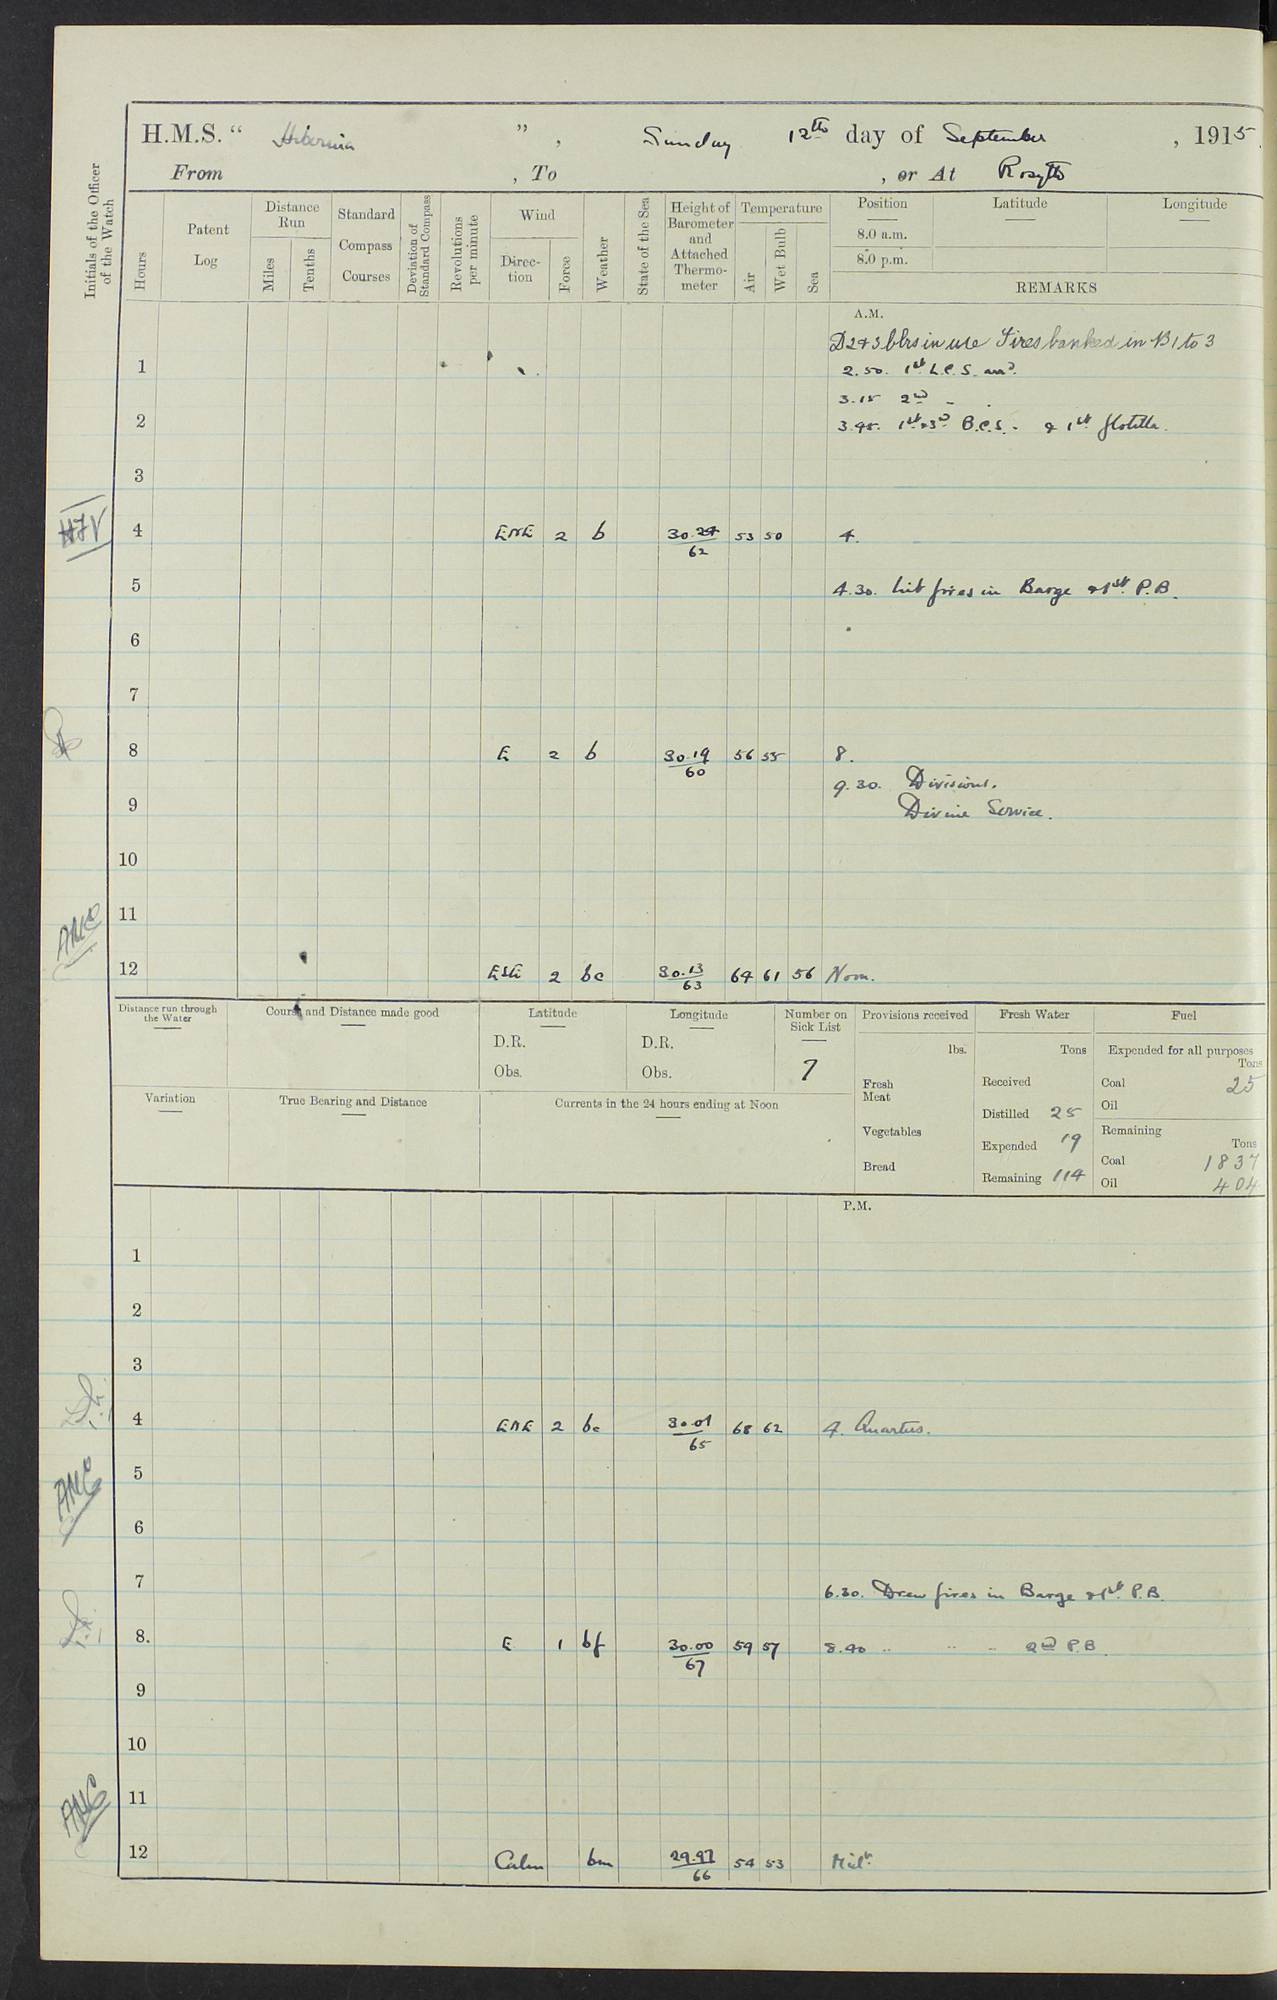 H.M.S. “ Hibernia ” , Sunday 12th day of September , 1915.
From , To , or At Rosyth
Initials of the Officer of the Watch
Hours
Patent Log
Distance Run
Miles
Tenths
Standard Compass Courses
Deviation of Standard Compass
Revolutions per minute
Wind
Direction
Force
Weather
State of the Sea
Height of Barometer and Attached Thermometer
Temperature
Air
Wet Bulb
Sea
Position Latitude Longitude
8.0 a.m.
8.0 p.m.
REMARKS
A.M.
D2+3 blrs in use Fires banked in B1 to 3
1
2.50. 1st L.C.S. arrd.
3.15 2nd - .
2
3.45. 1st & 3rd B.C.S. - & 1st flotilla.
3
4 ENE 2 b 30.24/62 53 50 4.
5
4.30. Lit fires in Barge & 1st P.B.
6
7
8 E 2 b 30.19/60 56 55 8.
9.30. Divisions.
9
Divine Service.
10
11
ANC
12 ESE 2 bc 30.13/63 64 61 56 Noon.
Distance run through the Water
Course and Distance made good
Latitude
D.R.
Obs.
Longitude
D.R.
Obs.
Number on Sick List
7
Variation
True Bearing and Distance
Currents in the 24 hours ending at Noon
Provisions received
lbs.
Fresh Meat
Vegetables
Bread
Fresh Water
Tons
Received
Distilled 25
Expended 19
Remaining 114
Fuel
Expended for all purposes
Tons
Coal 25
Oil
Remaining
Tons
Coal 1837
Oil 404
P.M.
1
2
3
4 ENE 2 bc 30.01/65 68 62 4. Quarters.
5
ANC
6
7
6.30. Drew fires in Barge & 1st P.B.
8. E 1 bf 30.00/67 59 57 8.40 .. .. - 2nd P.B.
9
10
11
ANC
12 Calm bm 29.97/66 54 53 Midt.